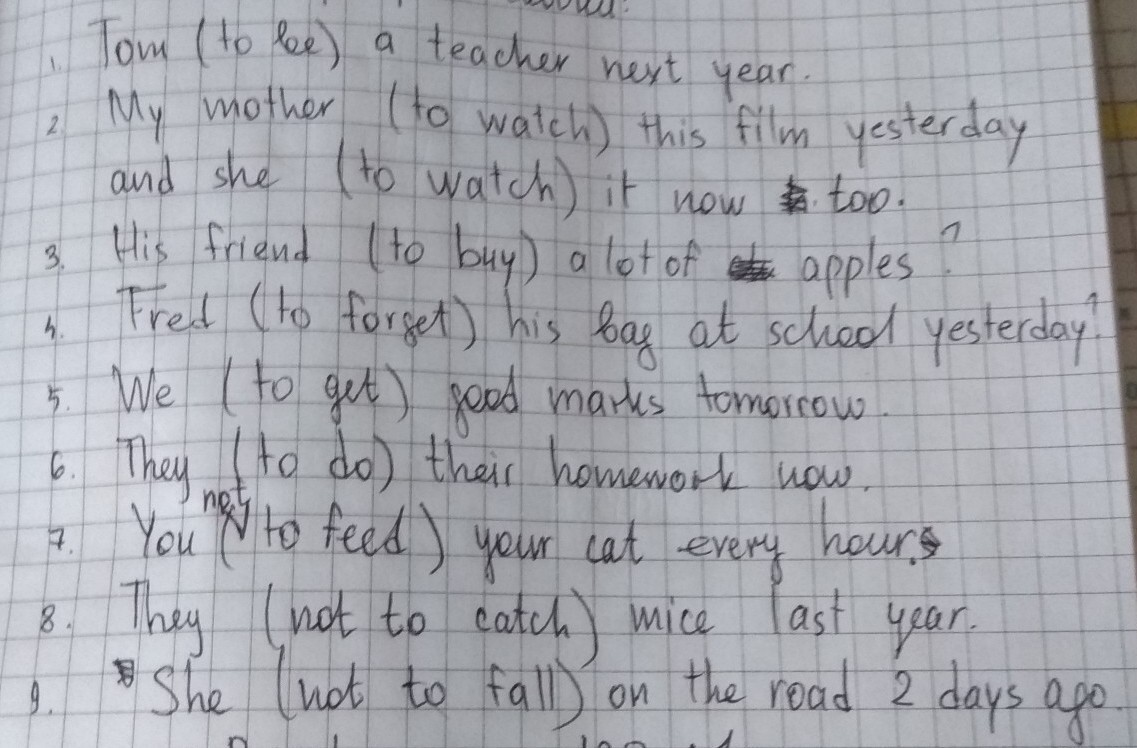 1. Tom (to be) a teacher next year.
2. My mother (to watch) this film yesterday
and she (to watch) it now too.
3. His friend (to buy) a lot of apples?
4. Fred (to forget) his bag at school yesterday?
5. We (to get) good marks tomorrow.
6. They (to do) their homework now.
7. You (not to feed) your cat every hour.
8. They (not to catch) mice last year.
9. She (not to fall) on the road 2 days ago.